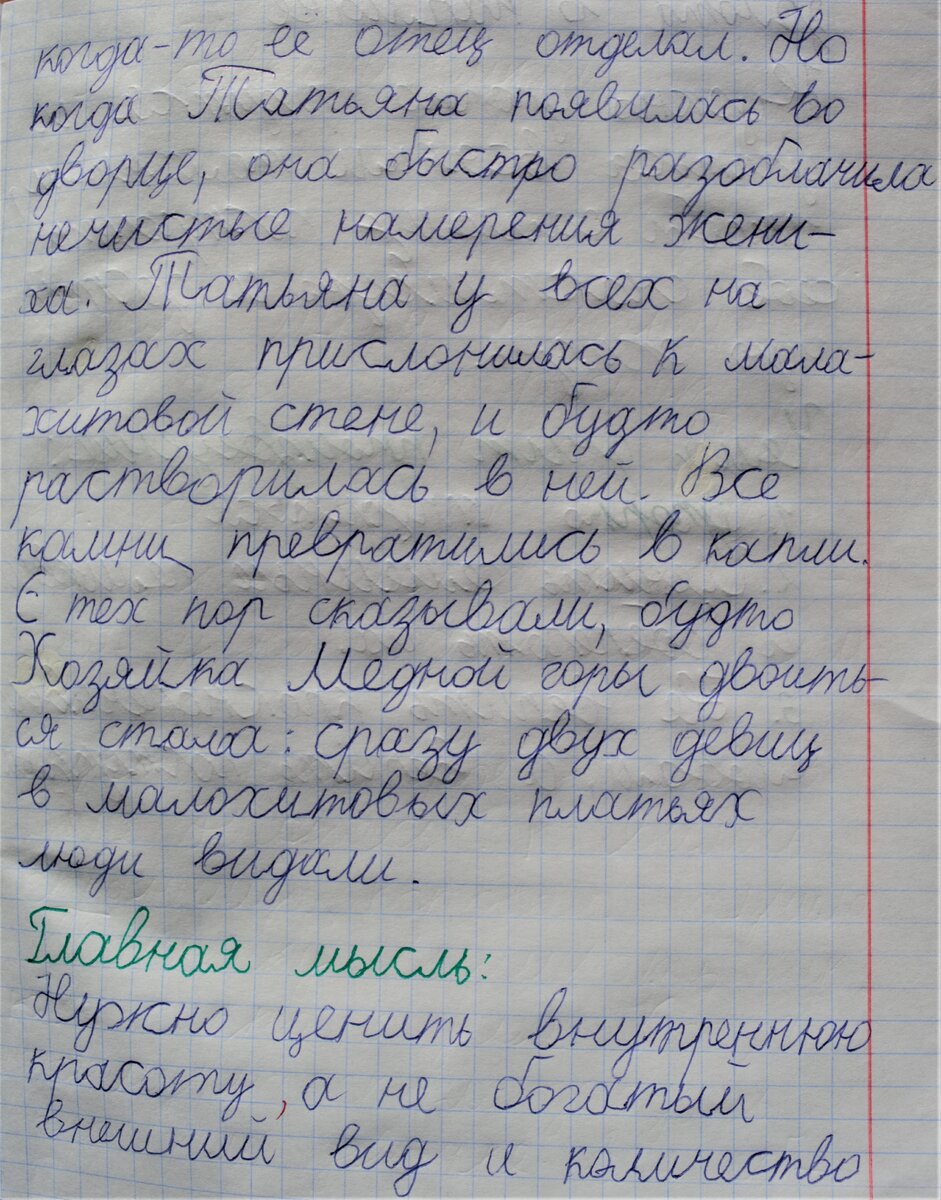 когда-то её отец отделал. Но
когда Татьяна появилась во
дворце, она быстро разоблачила
нечистые намерения жени-
ха. Татьяна у всех на
глазах прислонилась к мала-
хитовой стене, и будто
растворилась в ней. Все
камни превратились в капли.
С тех пор сказывали, будто
Хозяйка Медной горы двоить-
ся стала: сразу двух девиц
в малохитовых платьях
люди видали.
Главная мысль:
Нужно ценить внутреннюю
красоту, а не богатый
внешний вид и количество